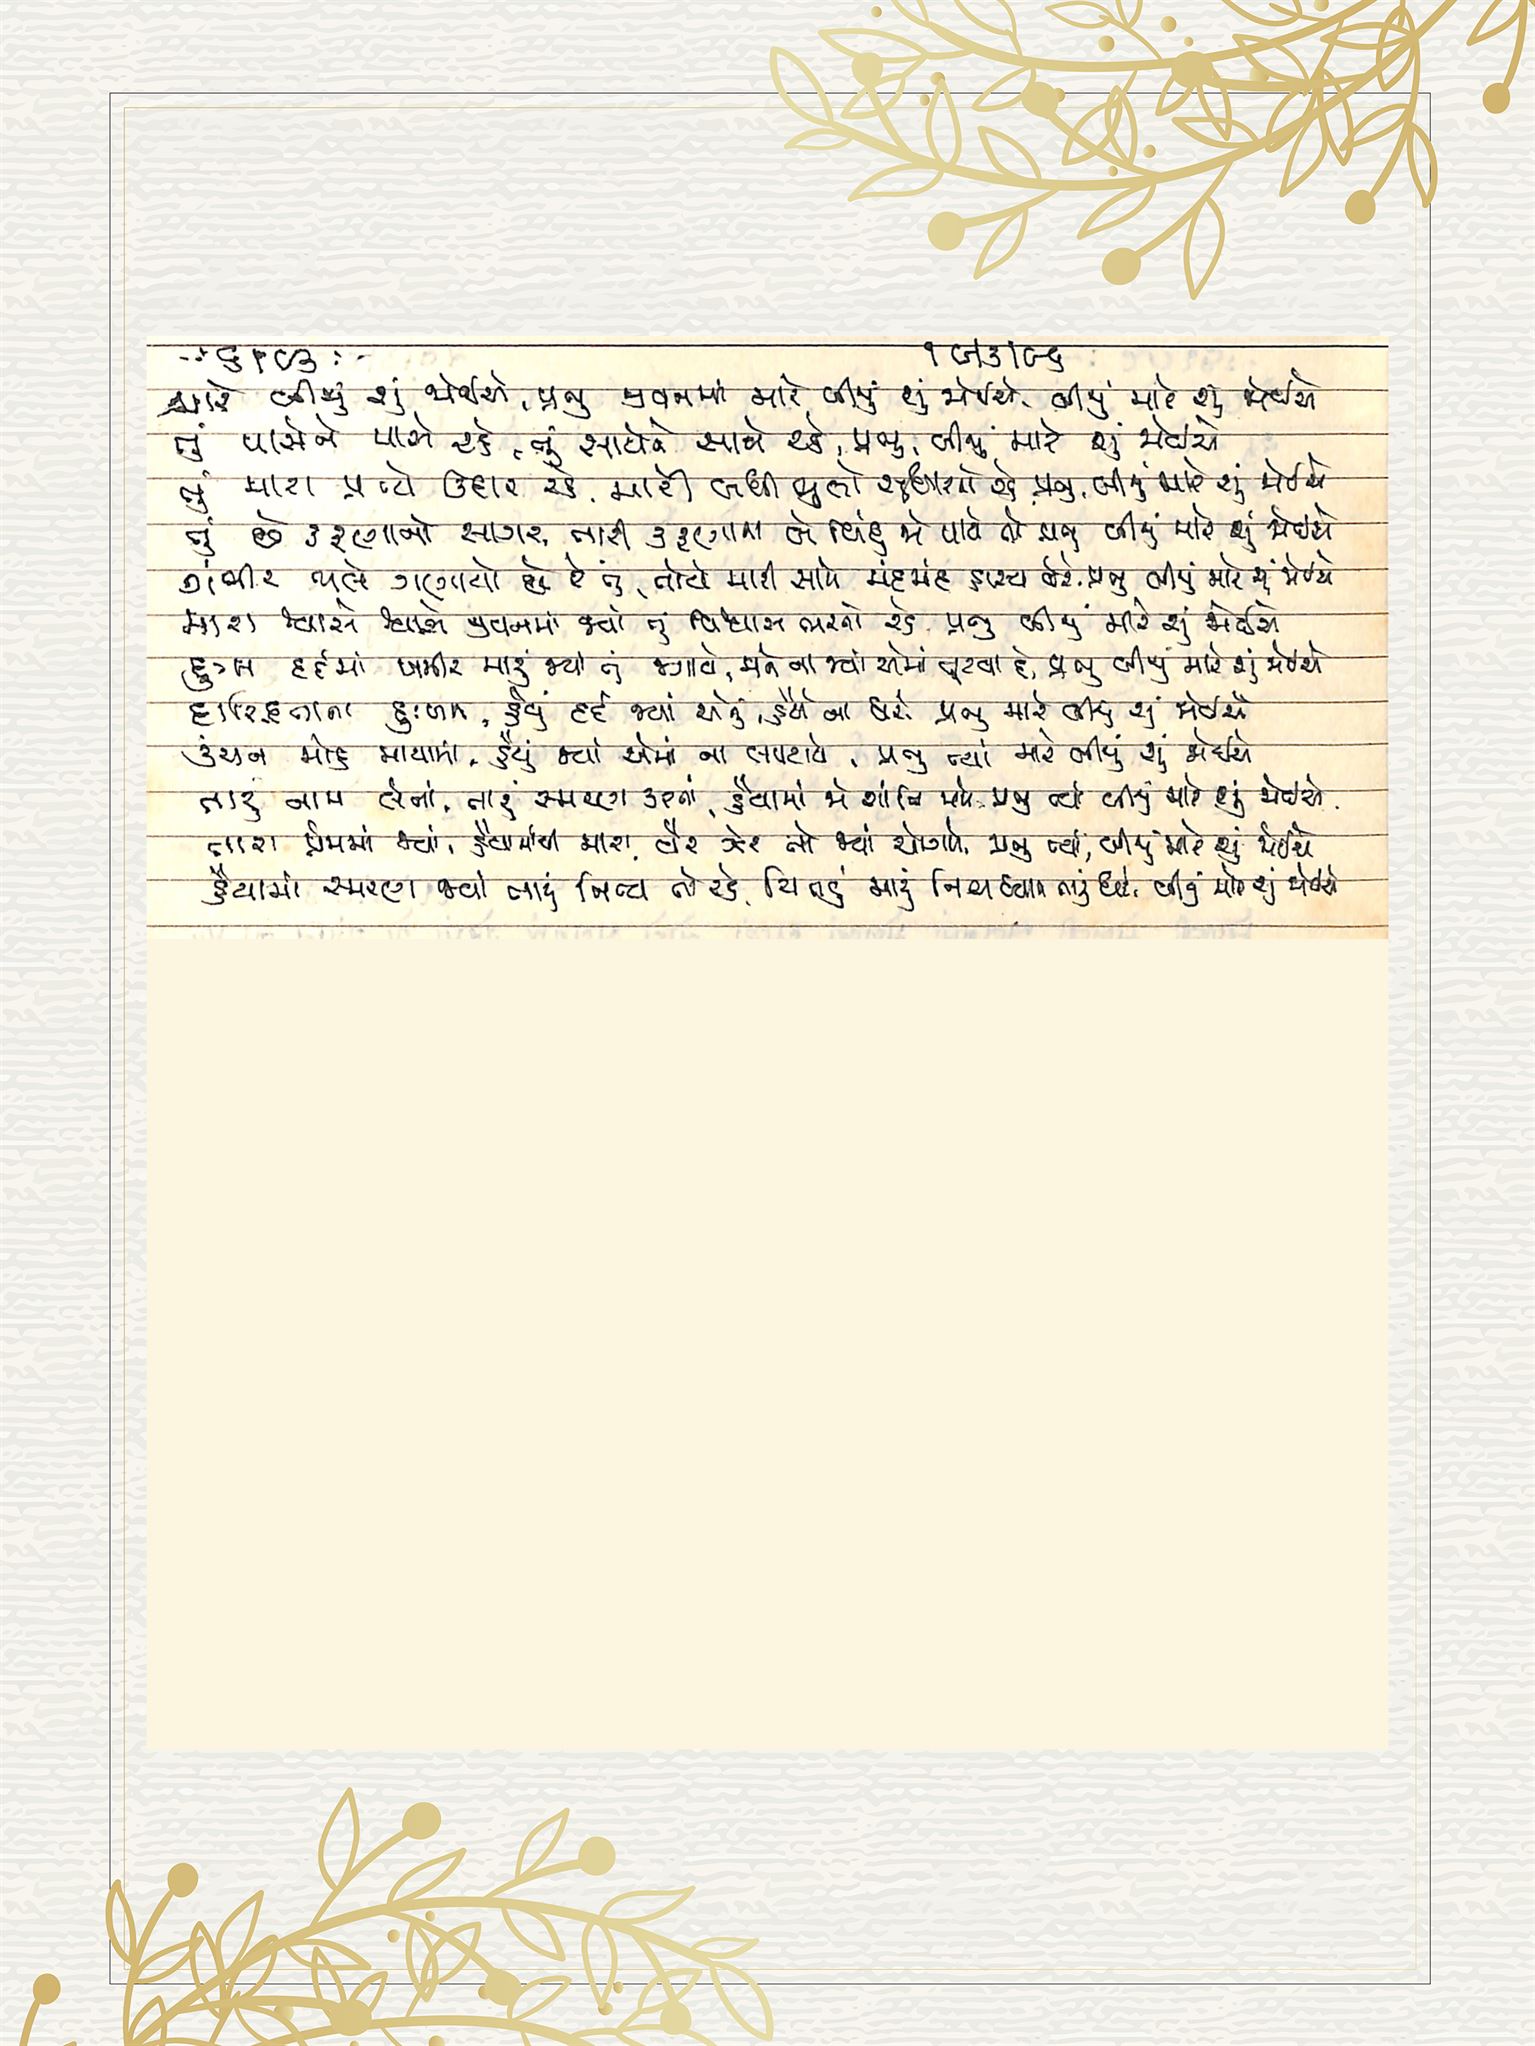 -: ૬૧૯૩ :- ૧૯૩।૯૬
મારે બીજું શું જોઈએ, પ્રભુ જીવનમાં મારે બીજું શું જોઈએ, બીજું મારે શું જોઈએ
તું પાસેને પાસે રહે, તું સાથેને સાથે રહે, પ્રભુ, બીજું મારે શું જોઈએ
તું મારા પ્રત્યે ઉદાર રહે, મારી બધી ભૂલો રહે પ્રભુ, બીજું મારે શું જોઈએ
તું છે કરૂણાનો સાગર, તારી કરૂણાના બે બિંદુ જો પાવે તો પ્રભુ બીજું મારે શું જોઈએ
ગંભીર ભલે ગણાયો હોય રે તું, તોયે મારી સામે મંદમંદ હાસ્ય વેરે, પ્રભુ બીજું મારે શું જોઈએ
મારા શ્વાસે શ્વાસે જીવનમાં જ્યાં તું વિશ્વાસ ભરતો રહે પ્રભુ બીજું મારે શું જોઈએ
દુઃખ દર્દમાં ખમીર મારું જ્યાં તું જગાવે, મને ના જ્યાં એમાં તૂટવા દે, પ્રભુ બીજું મારે શું જોઈએ
દારિદ્રતાના દુઃખમાં, હૈયું દર્દ જ્યાં એનું, હૈયે ના ધરે પ્રભુ મારે બીજું શું જોઈએ
કંચન મોહ માયામાં, હૈયું જ્યાં એમાં ના લપટાયે, પ્રભુ ત્યાં મારે બીજું શું જોઈએ
તારું નામ લેતાં, તારું સ્મરણ કરતાં, હૈયામાં જો શાંતિ મળે, પ્રભુ ત્યાં બીજું મારે શું જોઈએ.
તારા પ્રેમમાં જ્યાં, હૈયામાંથી મારા, વેર ઝેર તો જ્યાં ઓગળે, પ્રભુ ત્યાં, બીજું મારે શું જોઈએ
હૈયામાં સ્મરણ જ્યાં તારું નિત્ય તો રહે, ચિત્તડું મારું નિત્ય ધ્યાન તારું ધરે, બીજું મારે શું જોઈએ